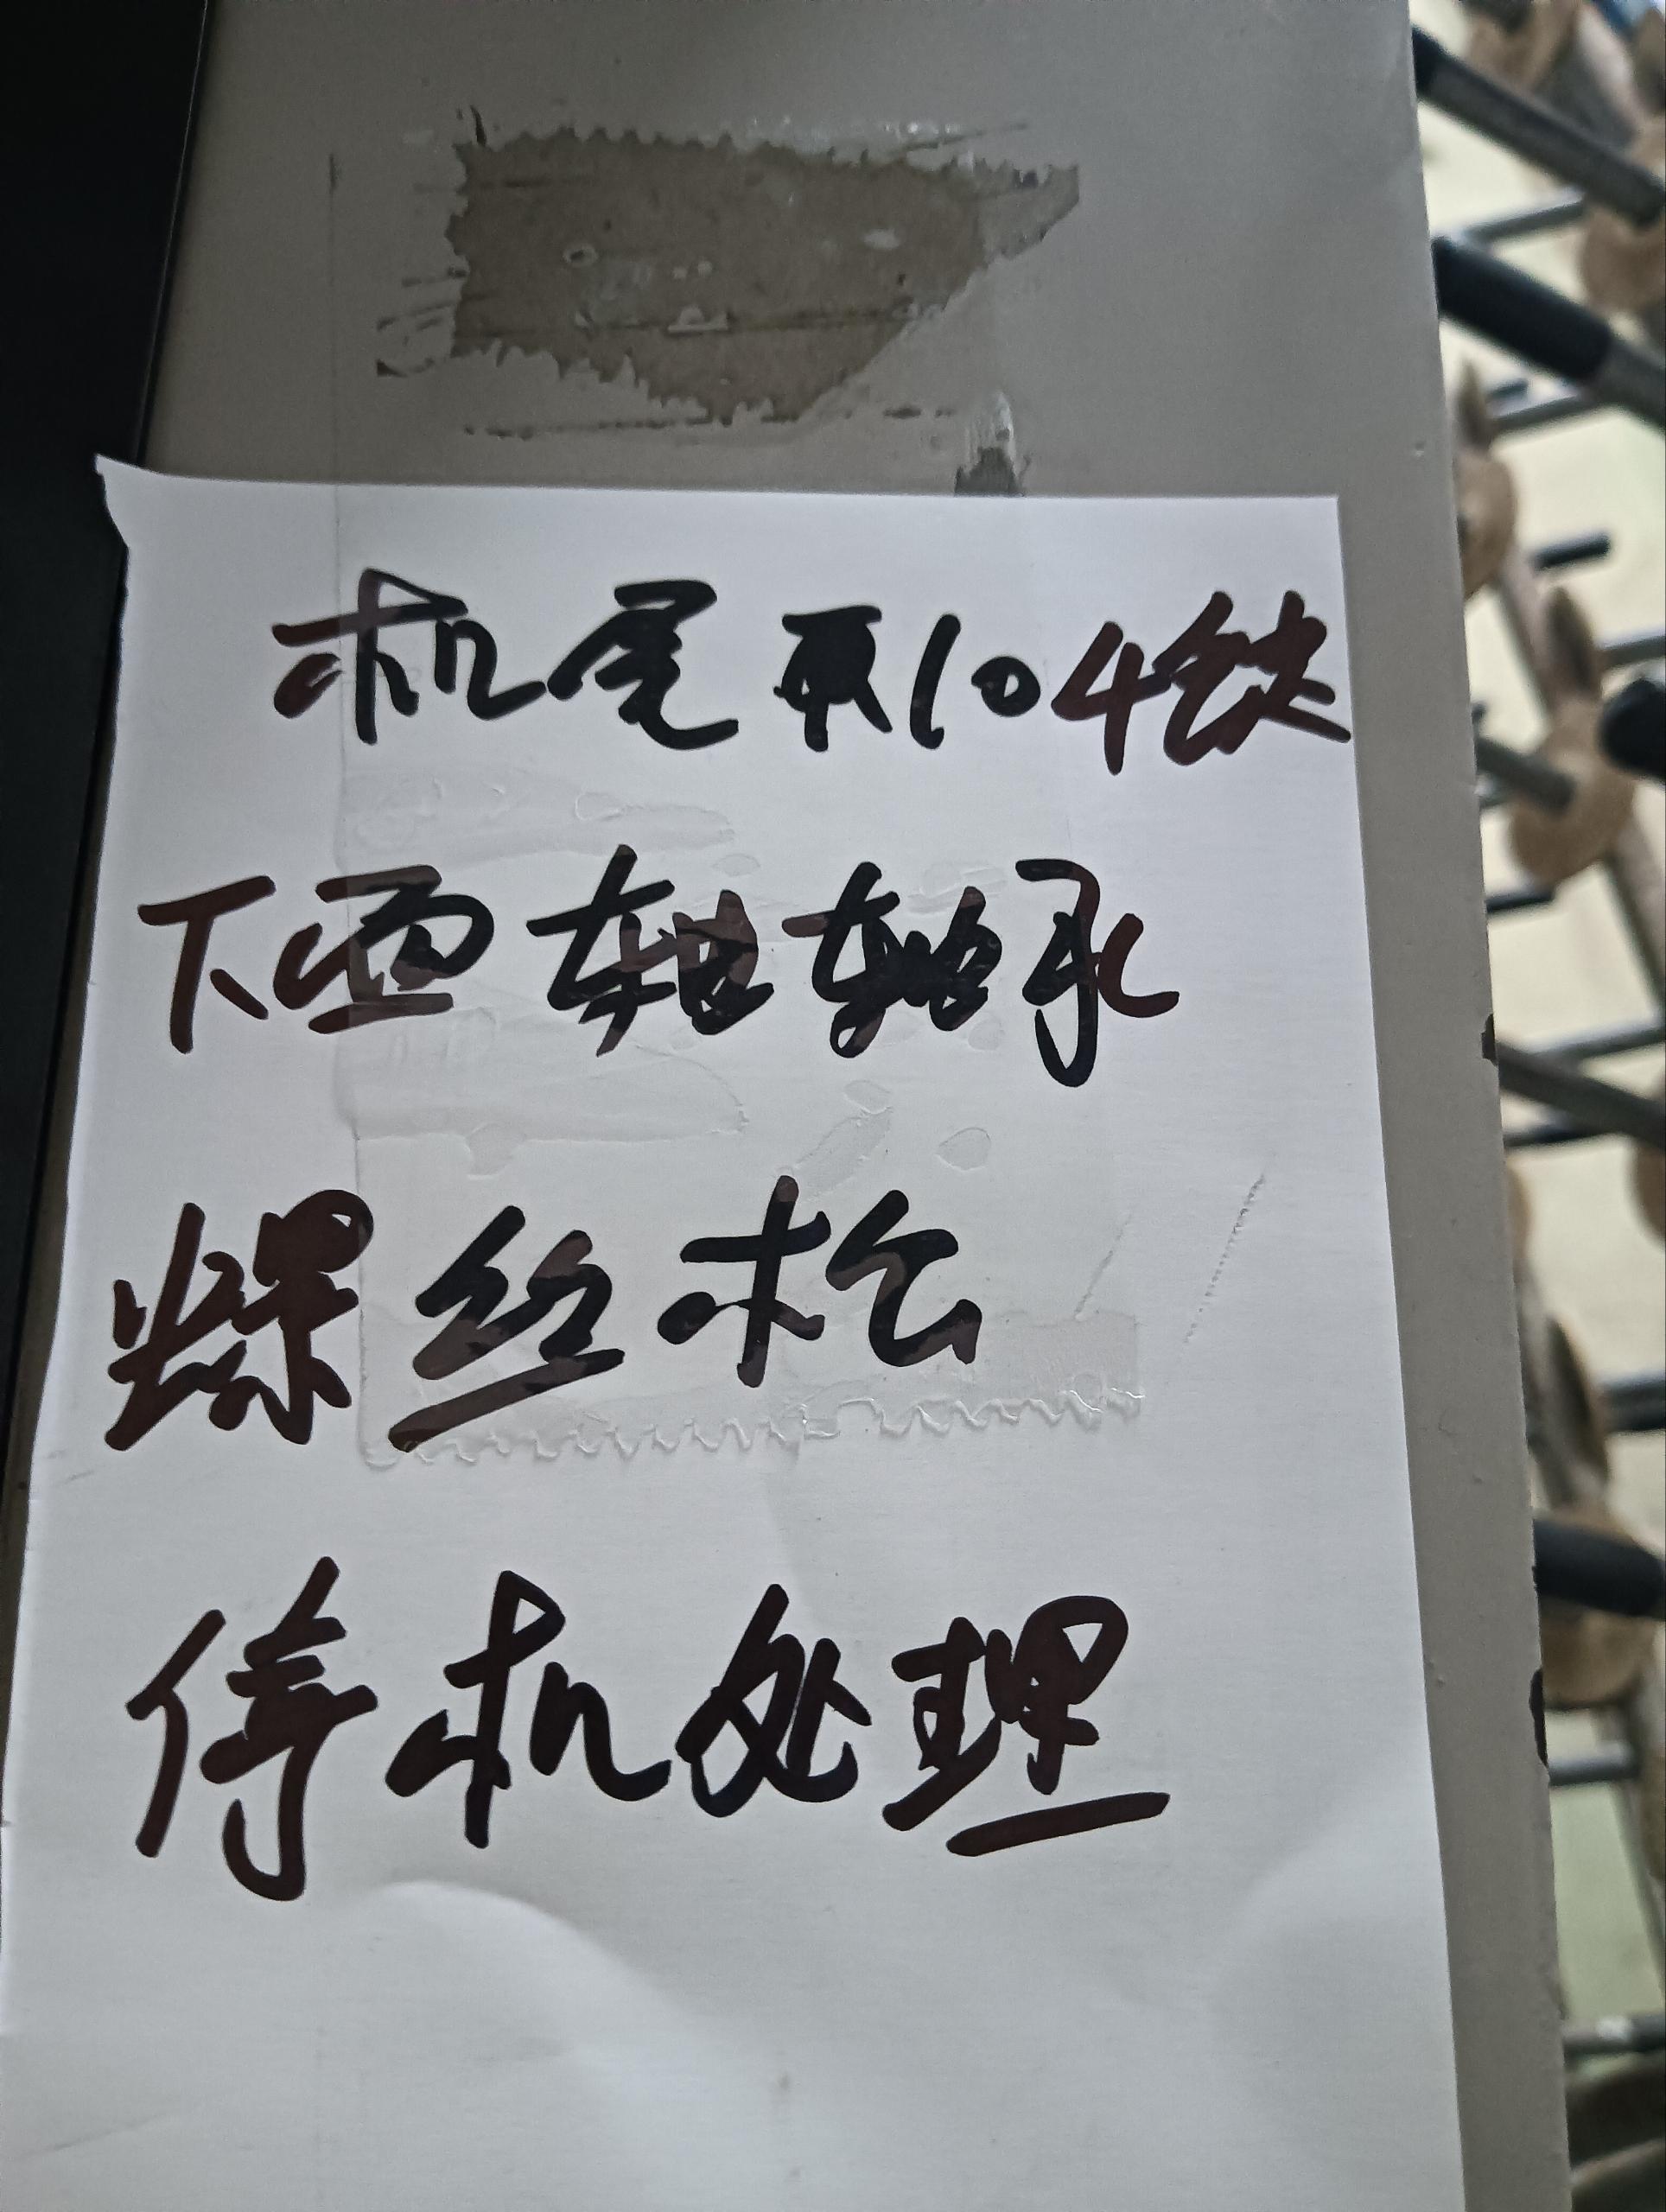 机尾104链
下面轴轴承
螺丝松
停机处理